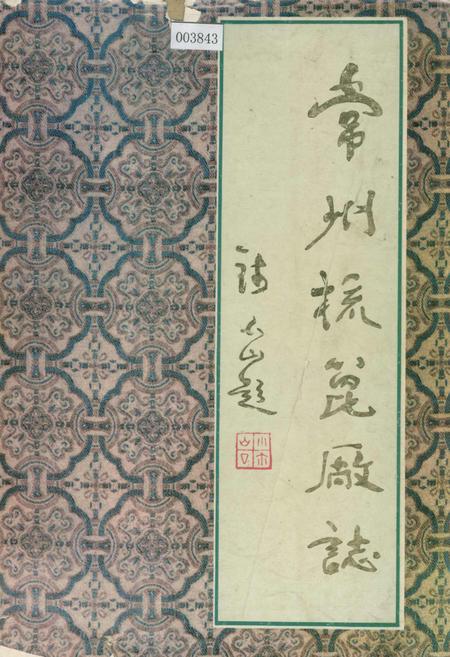 003843
常州梳篦厰誌
小山題